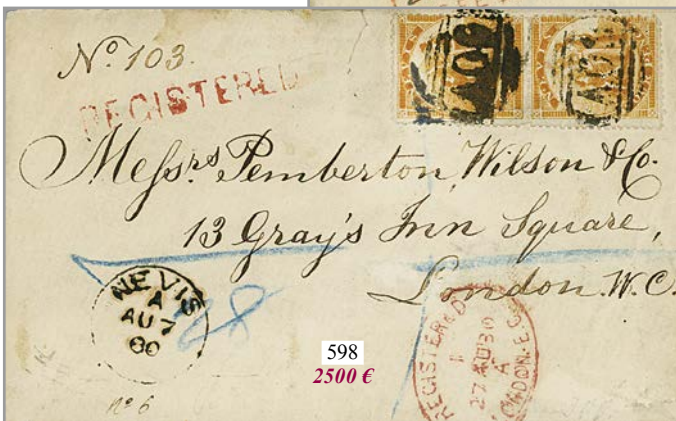 No. 103.
REGISTERED
A09 A09
Messrs Pemberton, Wilson & Co.
13 Gray's Inn Square,
London. W.C.
NEVIS
A
AU 7
80
28
REGISTERED
27 AU 80
A
LONDON. E.C.
598
2500 €
no 6